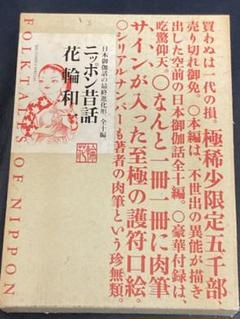 買わぬは一代の損。極稀少限定五千部、
売り切れ御免。〇本編は、不世出の異能が描き
出した空前の日本御伽話全十編。〇豪華付録は、
吃驚仰天。〇なんと一冊一冊に肉筆
サインが入った至極の護符口絵。
〇シリアルナンバーも著者の肉筆という珍無類。
日本御伽話の最終進化形、全十編。
ニッポン昔話
花輪和一
FOLK TALES OF NIPPON